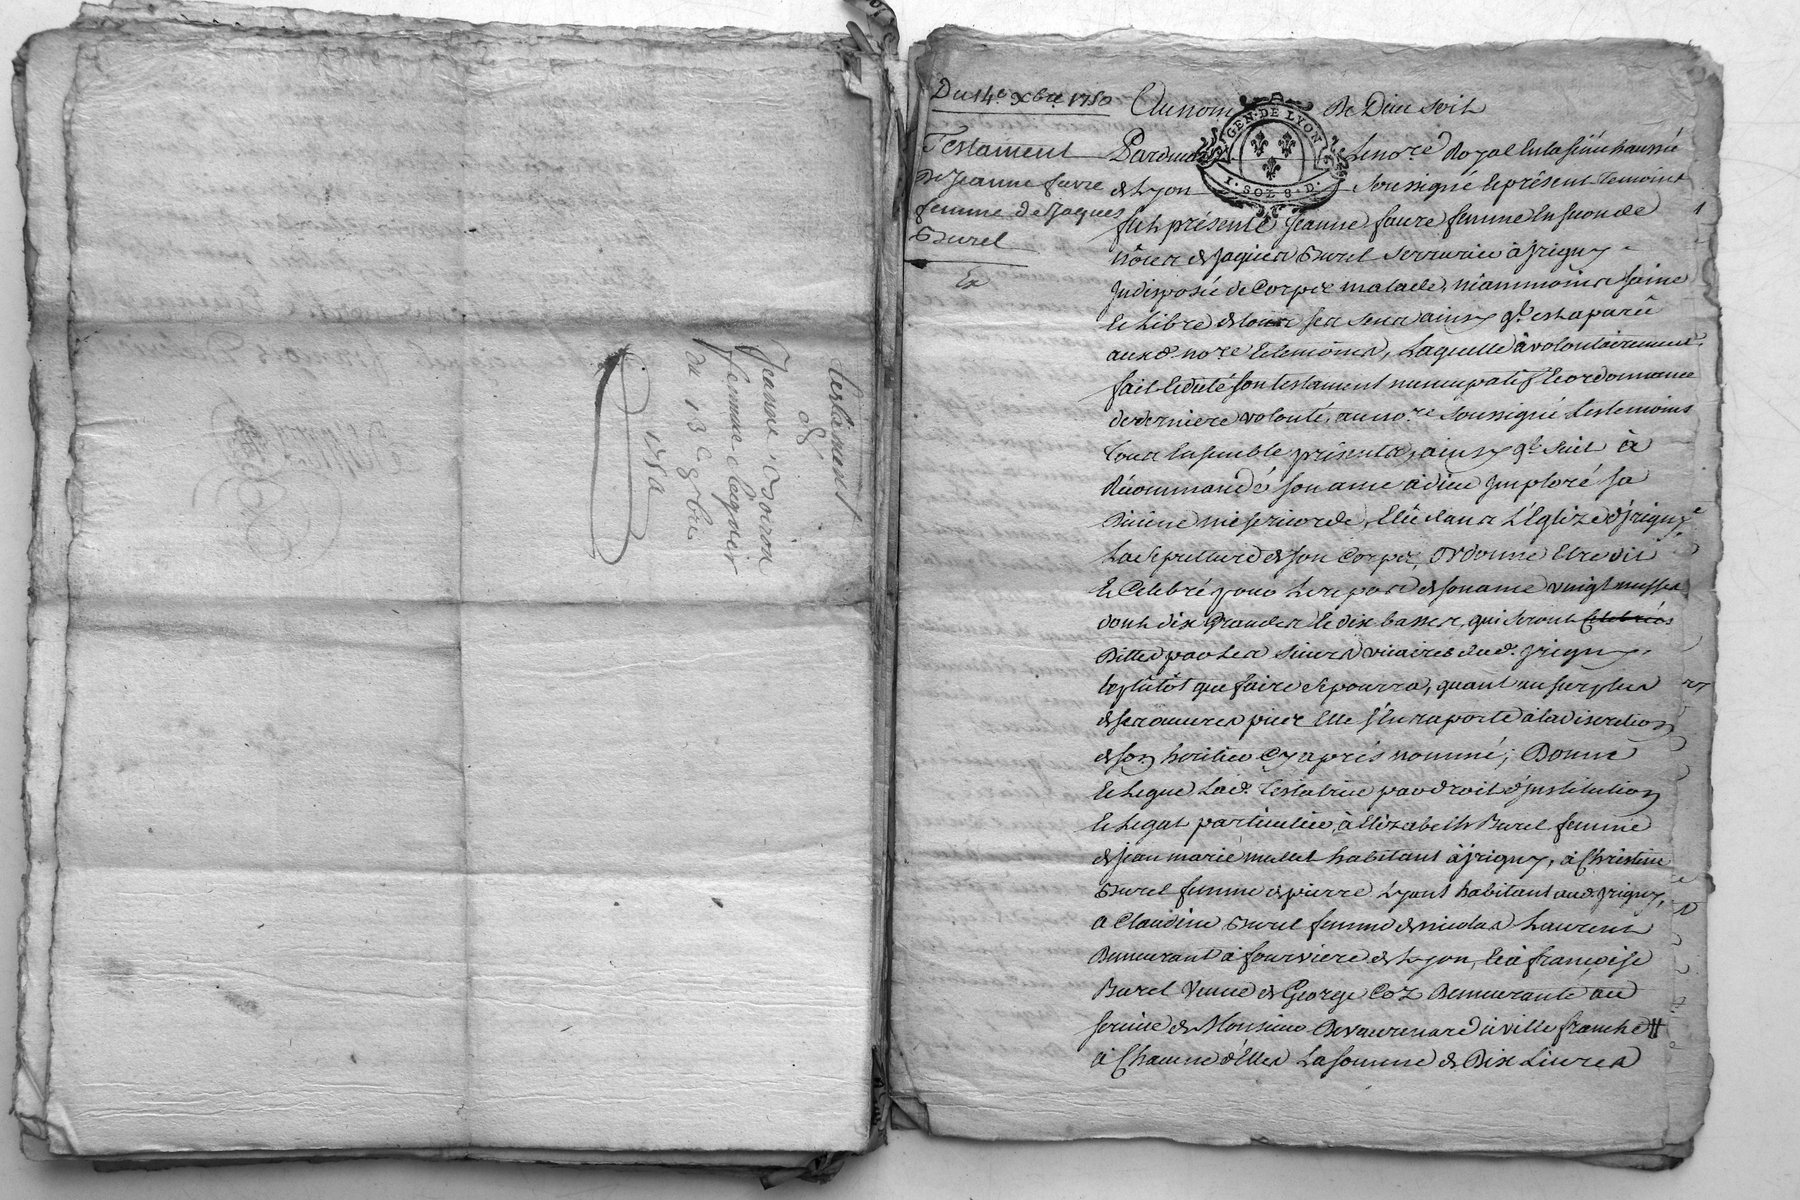 testament
de
Jeanne
femme
du 13e 9bre
1750
Du 14e Xbre 1750
Testament
de Jeanne favre
femme de Jaques
Burel
Ex
GEN. DE LYON
1. SOL 8. D.
Au nom De Dieu soit
Pardevant Le no.re Royal en la sénéchaussée
de Lyon soussigné et présents temoins
fut présente Jeanne favre femme en secondes
nôces de Jaques Burel serrurier à jrigny
Indisposée de Corps et malade, néanmoins saine
et Libre de tous ses sens ainsy q.l est aparû
aux d. no.re et temoins, Laquelle à volontairement
fait et dicté son testament nuncupatif et ordonnance
de derniere volonté, au no.re soussigné et temoins
tous ensemble présents, ainsy q.l suit à
Récommandé son ame à dieu Imploré sa
Divine misericorde, Elû dans L'Eglize d'jrigny
La sepulture de son Corps, ordonne Etre dit
et Celebré pour Le repos de son ame vingt messes
dont dix Grandes et dix basses, qui seront Celebrées
Dittes par Les sieurs vicaires dud. jrigny
le plûtôt que faire se pourra, quant au surplus
de ses œuvres pies Elle s'En raporte à la discretion
de son héritier Cy après nommé; Donne
et Legue Lad. testatrice par droit d'institution
et Legat particulier, à Elizabeth Burel femme
de jean marie mullet habitant à jrigny, à Christine
Burel femme de pierre Lyont habitant aud. jrigny,
a Claudine Burel femme de nicolas Laurent
Demeurant à fourviere de Lyon, et à françoise
Burel Veuve de George Coz Demeurante au
service de Monsieur Devaurenard à ville franche
à Chacune d'Elles La somme de Dix Livres